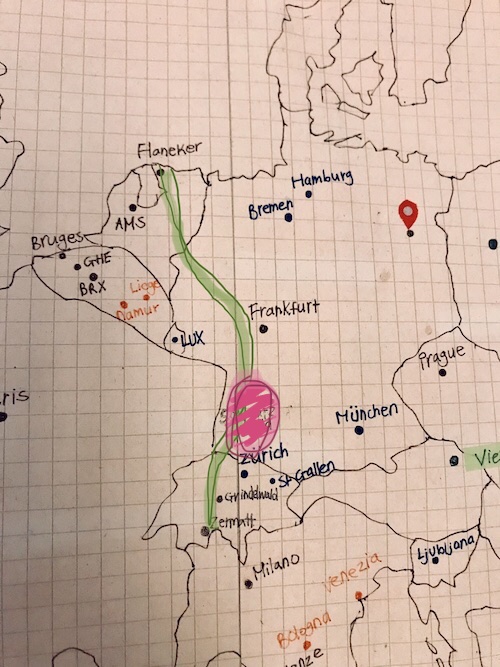 Flaneker
Hamburg
Bremen
AMS
Bruges
GHE
BRX
Liege
Namur
LUX
Frankfurt
Prague
ris
München
Zürich
St Gallen
Vie
Grindelwald
Zermatt
Ljubljana
Milano
Venezia
Bologna